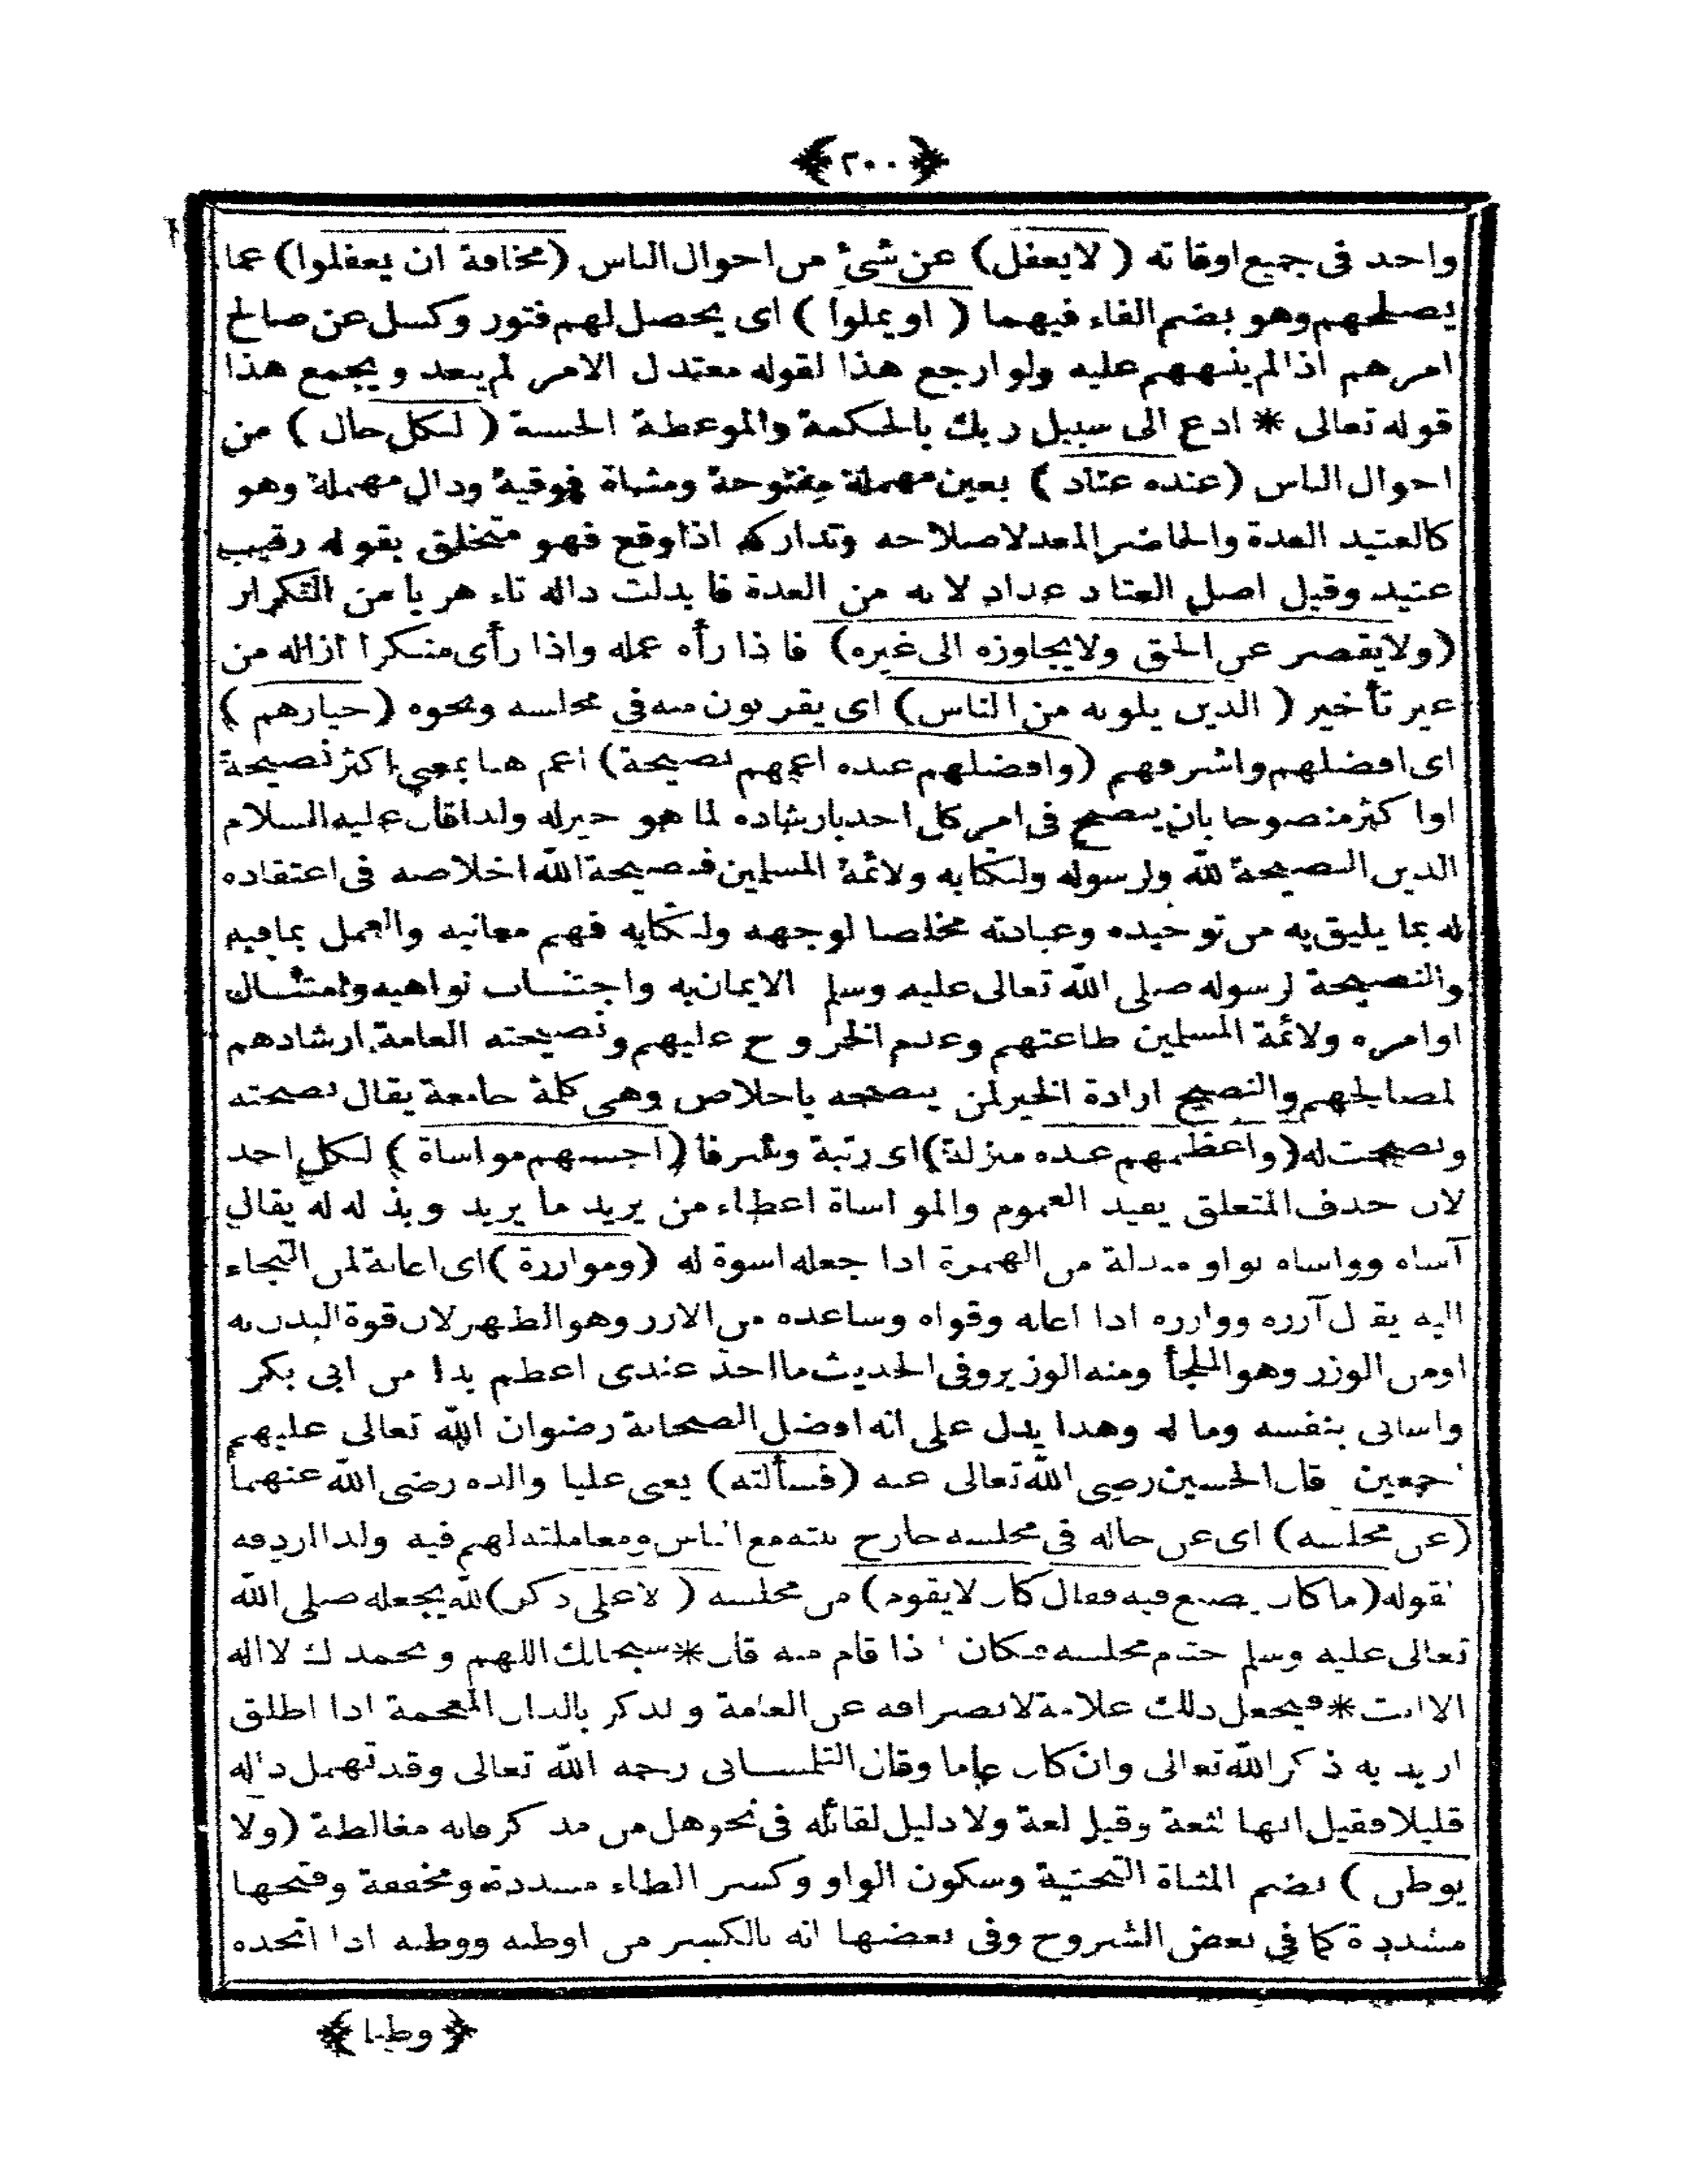 ﴿٢٠٠﴾
واحد فى جميع اوقاته ( لايغفل ) عن شئ من احوال الناس (مخافة ان يغفلوا) عما
يصلحهم وهو بضم الفاء فيهما ( او يملوا ) اى يحصل لهم فتور وكسل عن صالح
امرهم اذا لم ينبههم عليه ولو ارجع هذا لقوله معتدل الامر لم يبعد ويجمع هذا
قوله تعالى * ادع الى سبيل ربك بالحكمة والموعظة الحسنة ( لكل حال ) من
احوال الناس (عنده عتاد ) بعين مهملة مفتوحة ومثناة فوقية ودال مهملة وهو
كالعتيد العدة والحاضر المعد لاصلاحه وتداركه اذا وقع فهو متخلق بقوله رقيب
عتيد وقيل اصل العتاد عداد لانه من العدة فابدلت داله تاء هربا من التكرار
(ولايقصر عن الحق ولايجاوزه الى غيره) فاذا رأه عمله واذا رأى منكرا ازاله من
غير تأخير ( الذين يلونه من الناس ) اى يقربون منه فى مجلسه ونحوه (خيارهم )
اى افضلهم واشرفهم (وافضلهم عنده اعمهم نصيحة) اعم هنا بمعنى اكثر نصيحة
او اكثر منصوحا بان ينصح فى امر كل احد بارشاده لما هو خير له ولذا قال عليه السلام
الدين النصيحة لله ولرسوله ولكتابه ولائمة المسلين فنصيحة الله اخلاصه فى اعتقاده
له بما يليق به من توحيده وعبادته مخلصا لوجهه ولكتابه فهم معانيه والعمل بمافيه
والنصيحة لرسوله صلى الله تعالى عليه وسلم الايمان به واجتناب نواهيه وامتثال
اوامره ولائمة المسلين طاعتهم وعدم الخروج عليهم ونصيحته العامة ارشادهم
لمصالحهم والنصيح ارادة الخير لمن ينصحه باخلاص وهى كلة جامعة يقال نصحته
ونصحت له (واعظمهم عنده منزلة) اى رتبة وشرفا (احسنهم مواساة ) لكل احد
لان حذف المتعلق يفيد العموم والمواساة اعطاء من يريد ما يريد وبذله له يقال
آساه وواساه بواو مبدلة من الهمزة اذا جعله اسوة له (وموازرة ) اى اعانة لمن التجاء
اليه يقال آزره ووازره اذا اعانه وقواه وساعده من الازر وهو الظهر لان قوة البدن به
اومن الوزر وهو الملجأ ومنه الوزير وفى الحديث ما احد عندى اعظم يدا من ابى بكر
واسانى بنفسه وماله وهذا يدل على انه افضل الصحابة رضوان الله تعالى عليهم
اجمعين قال الحسين رضى الله تعالى عنه (فسألته) يعنى عليا والده رضى الله عنهما
(عن مجلسه) اى عن حاله فى مجلسه خارج بيته مع الناس ومعاملته لهم فيه ولذا اردفه
بقوله (ما كان يصنع فيه فقال كان لايقوم) من مجلسه ( الا على ذكر) لله يجعله صلى الله
تعالى عليه وسلم ختم مجلسه فكان اذا قام منه قال * سبحانك اللهم وبحمدك لااله
الا انت * فيجعل ذلك علامة لانصرافه عن العامة والذكر بالذال المعجمة اذا اطلق
اريد به ذكر الله تعالى وان كان عاما وقال التلمسانى رحمه الله تعالى وقد تهمل داله
قليلا فقيل انها لثغة وقيل لغة ولا دليل لقائله فى نحو هل من مدكر فانه مغالطة (ولا
يوطن ) بضم المثناة التحتية وسكون الواو وكسر الطاء مشددة ومخففة وفتحها
مشددة كما فى بعض الشروح وفى بعضها انه بالكسر من اوطنه ووطنه اذا اتخذه
﴿ وطنا ﴾